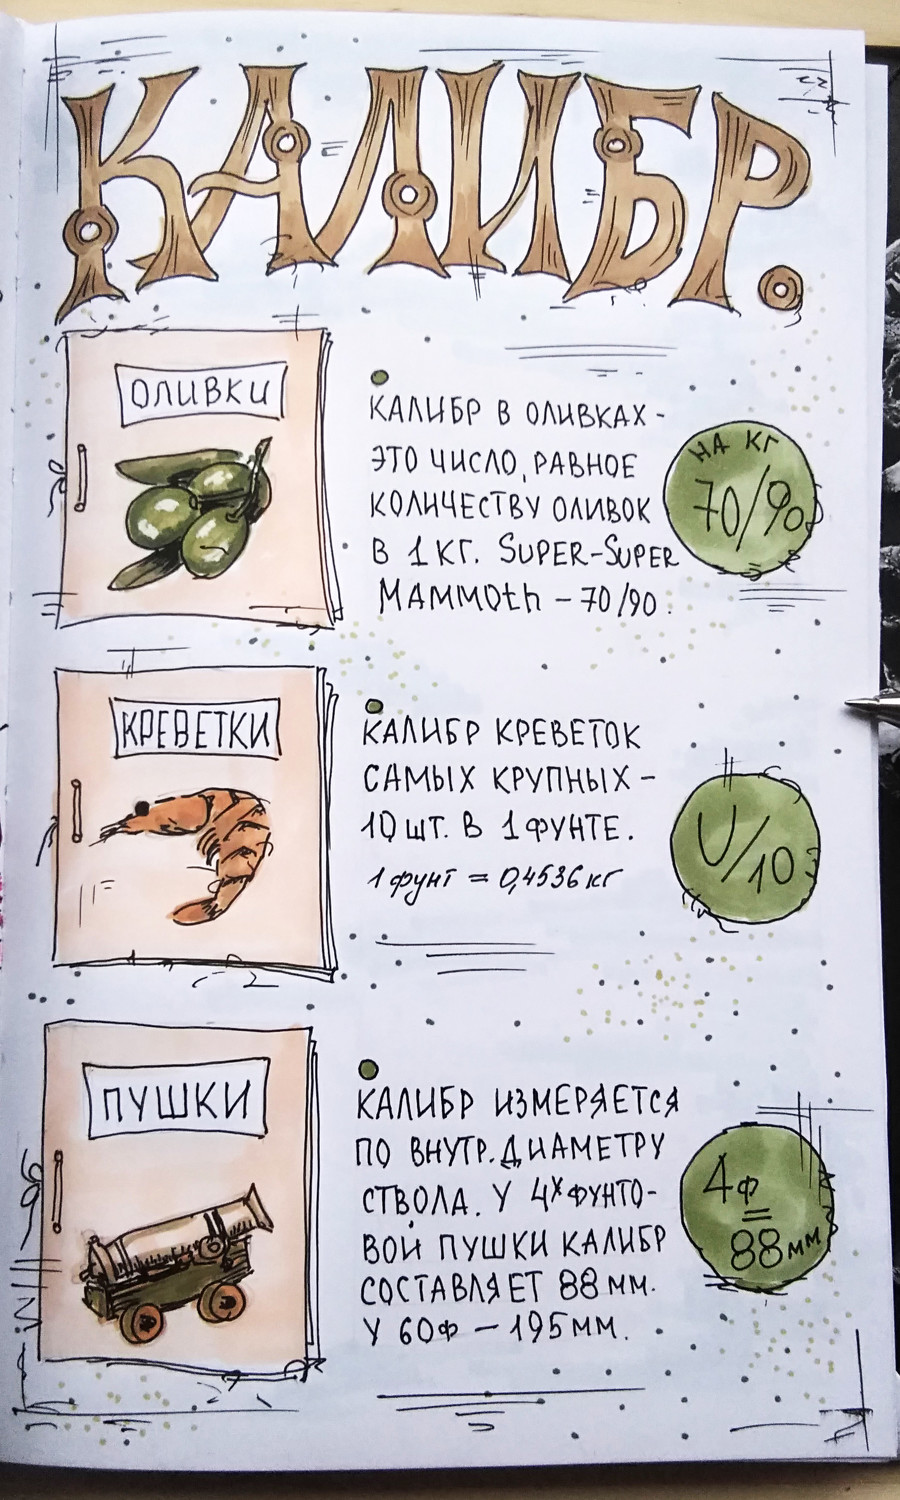 КАЛИБР.
ОЛИВКИ
КАЛИБР В ОЛИВКАХ -
ЭТО ЧИСЛО, РАВНОЕ
КОЛИЧЕСТВУ ОЛИВОК
В 1 КГ. SUPER-SUPER
MAMMOth - 70/90.
НА КГ
70/90
КРЕВЕТКИ
КАЛИБР КРЕВЕТОК
САМЫХ КРУПНЫХ -
10 ШТ. В 1 ФУНТЕ.
1 фунт = 0,4536 кг
U/10
ПУШКИ
КАЛИБР ИЗМЕРЯЕТСЯ
ПО ВНУТР. ДИАМЕТРУ
СТВОЛА. У 4Х ФУНТО-
ВОЙ ПУШКИ КАЛИБР
СОСТАВЛЯЕТ 88 ММ.
У 60Ф - 195 ММ.
4ф
=
88 мм